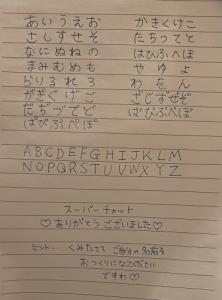 あいうえお　かきくけこ
さしすせそ　たちってと
なにぬねの　はひふへほ
まみむめも　やゆよ
らりるれろ　わをん
がぎぐげご　ざじずぜぞ
だぢづでど　ばびぶべぼ
ぱぴぷぺぽ
ABCDEFGHIJKLM
NOPQRSTUVWXYZ
スーパーチャット
♡ありがとうございました♡
ヒント… くみたてて ご自分の名前を
おつくりになってください
ですわ♡